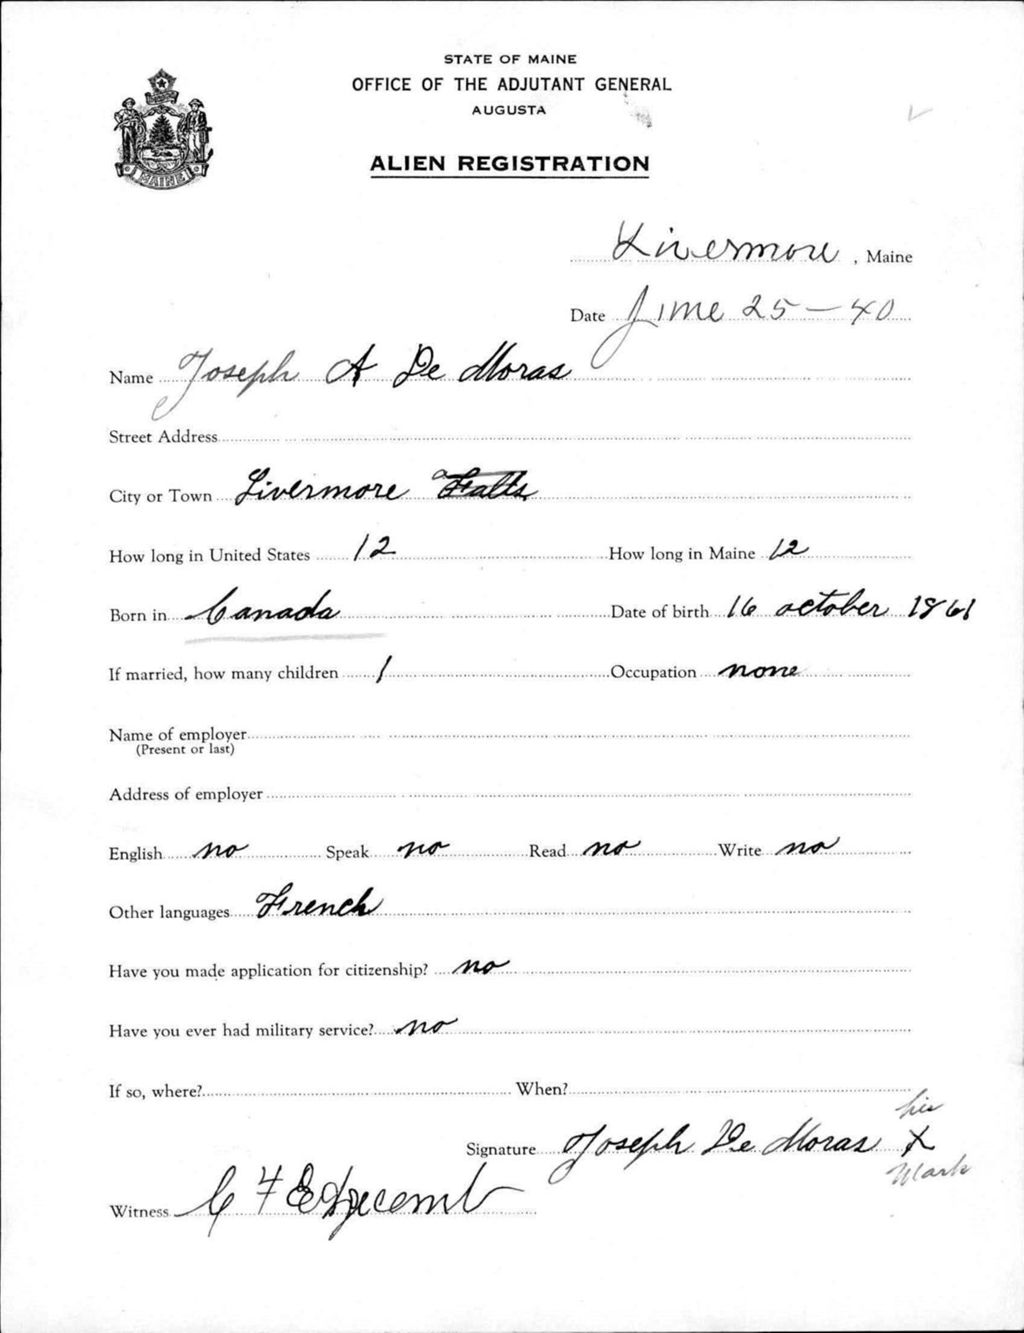 STATE OF MAINE
OFFICE OF THE ADJUTANT GENERAL
AUGUSTA
ALIEN REGISTRATION
MAINE
Livermore, Maine
Date June 25-40
Name Joseph A De Moras
Street Address
City or Town Livermore Falls
How long in United States 12 How long in Maine 12
Born in Canada Date of birth 16 october 1861
If married, how many children 1 Occupation none
Name of employer
(Present or last)
Address of employer
English no Speak no Read no Write no
Other languages French
Have you made application for citizenship? no
Have you ever had military service? no
If so, where? When?
his
Signature Joseph De Moras X
Mark
Witness C F Edgecomb